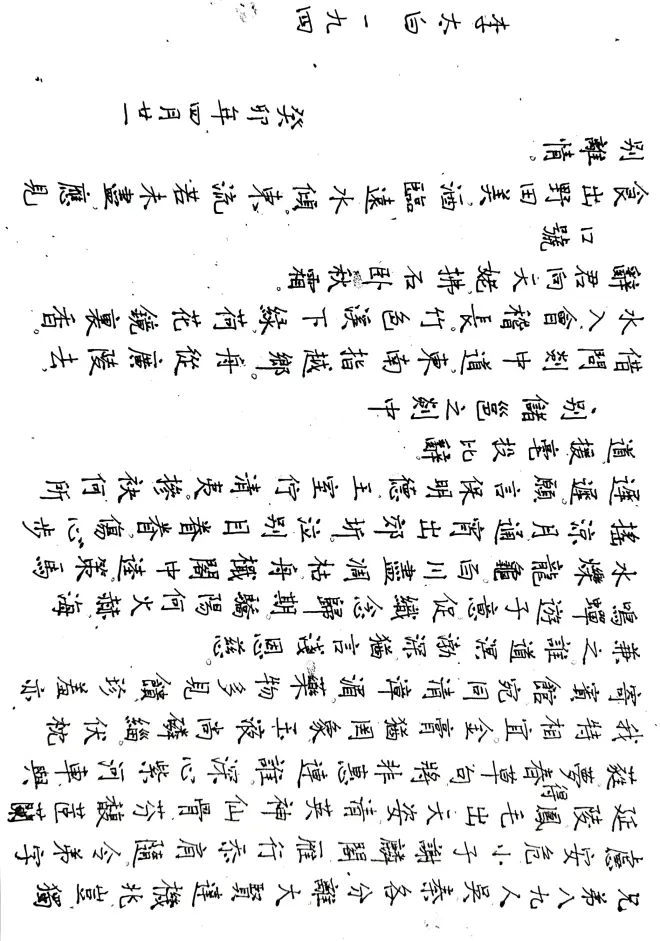 兄弟八九人吳秦各分離。大賢達機兆豈獨
慮安危。小子謝麟閣雁行忝肩隨。令弟字
延陵鳳毛出天姿。清英神仙骨芬馥茝蘭
蕤。夢得春草句將非惠連誰。深心紫河車與
我特相宜。金膏猶罔象玉液尚磷緇。伏枕
寄賓館宛同清漳湄。藥物多見饋珍羞亦
兼之。誰道溟渤深猶言淺恩慈。
鳴蟬遊子意促織念歸期。驕陽何火赫海
水爍龍龜。百川盡凋枯舟楫閣中逵。策馬
搖涼月通宵出郊圻。泣別目眷眷傷心步
遲遲。願言保明德王室佇清夷。摻袂何所
道援毫投此辭。
別儲邕之剡中
借問剡中道東南指越鄉。舟從廣陵去
水入會稽長。竹色溪下綠荷花鏡裏香。
辭君向天姥拂石臥秋霜。
口號
食出野田美酒臨遠水傾。東流若未盡應見
別離情。
癸卯年四月廿一
李太白一九四